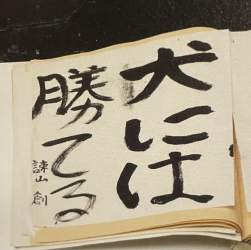 犬には
勝てる
諫山 創